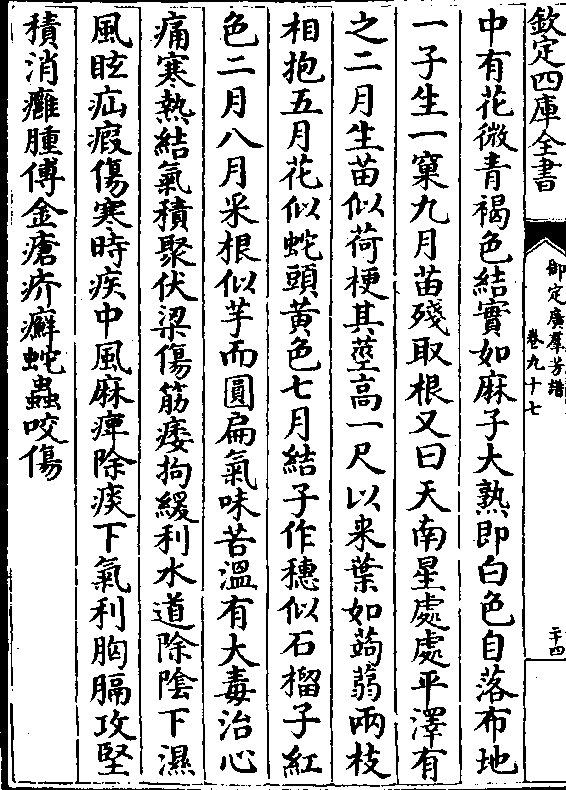 欽定四庫全書
御定廣羣芳譜
卷九十七
二十四
中有花微青褐色結實如麻子大熟即白色自落布地
一子生一窠九月苗殘取根又曰天南星處處平澤有
之二月生苗似荷梗其莖高一尺以來葉如蒟蒻兩枝
相抱五月花似蛇頭黄色七月結子作穗似石榴子紅
色二月八月采根似芋而圓扁氣味苦溫有大毒治心
痛寒熱結氣積聚伏梁傷筋痿拘緩利水道除陰下濕
風眩疝瘕傷寒時疾中風麻痺除痰下氣利胸膈攻堅
積消癰腫傅金瘡疥癬蛇蟲咬傷